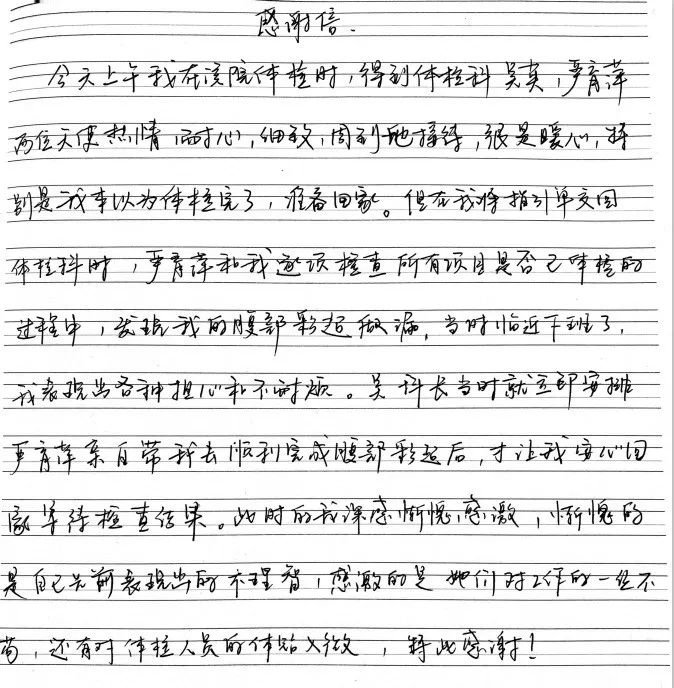 感谢信.
今天上午我在医院体检时，得到体检科吴真，严育萍
两位天使热情，耐心，细致，周到地接待，很是暖心，特
别是我本以为体检完了，准备回家。但在我将指引单交回
体检科时，严育萍和我逐项检查所有项目是否已体检的
过程中，发现我的腹部彩超做漏，当时临近下班了，
我表现出各种担心和不耐烦。吴科长当时就立即安排
严育萍亲自带我去顺利完成腹部彩超后，才让我安心回
家等待检查结果。此时的我深感惭愧，感激，惭愧的
是自己先前表现出的不理智，感激的是她们对工作的一丝不
苟，还有对体检人员的体贴入微，特此感谢！